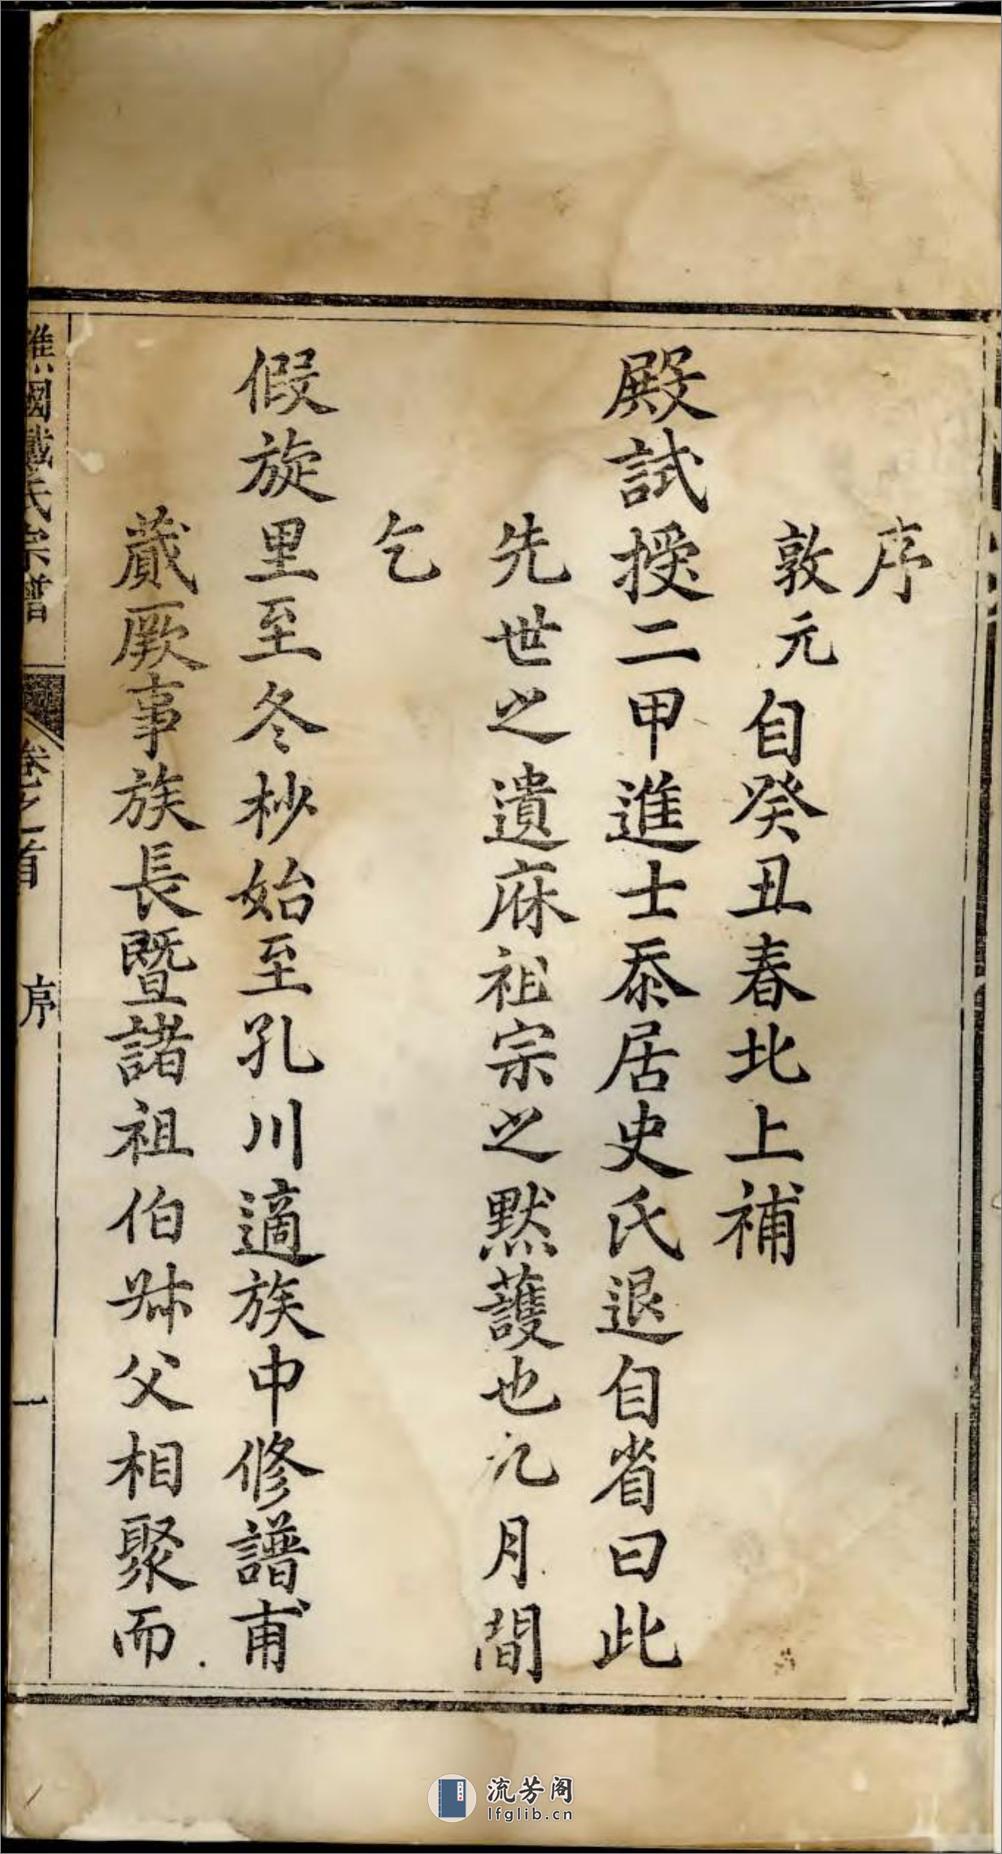 序
敦元自癸丑春北上補
殿試授二甲進士忝居史氏退自省曰此
先世之遺庥祖宗之默護也九月間
乞
假旋里至冬杪始至孔川適族中修譜甫
蕆厥事族長暨諸祖伯叔父相聚而
譙國戴氏宗譜
卷之首
序
一
流芳阁
lfglib.cn